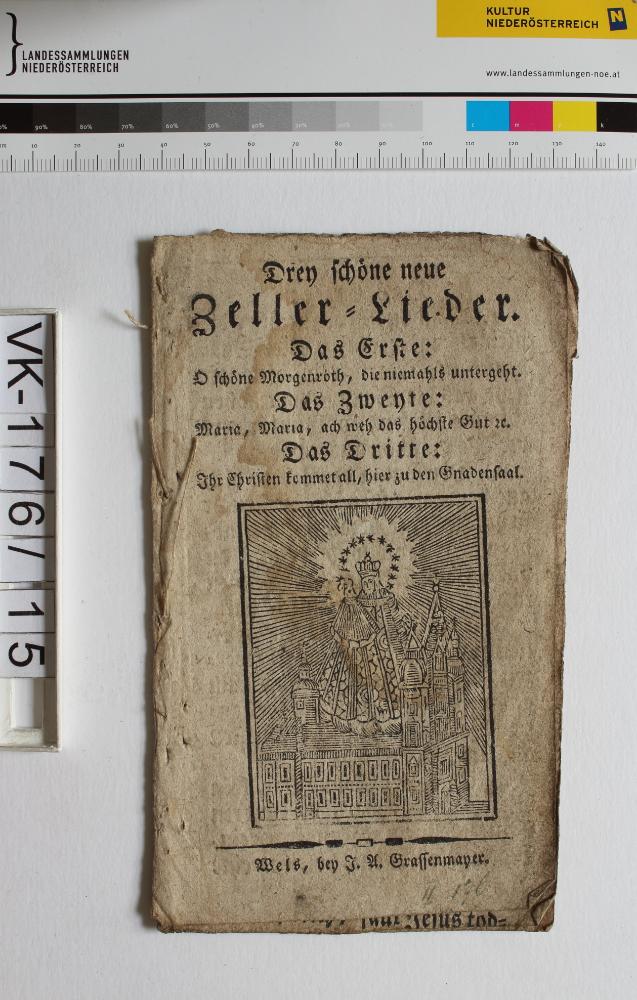 LANDESSAMMLUNGEN
NIEDERÖSTERREICH
KULTUR
NIEDERÖSTERREICH
N
www.landessammlungen-noe.at
90% 80% 70% 60% 50% 40% 30% 20% 10% c m y k
10 20 30 40 50 60 70 80 90 100 110 120 130 140
VK-176/15
Drey schöne neue
Zeller-Lieder.
Das Erste:
O schöne Morgenröth, die niemahls untergeht.
Das Zweyte:
Maria, Maria, ach weh das höchste Gut ꝛc.
Das Dritte:
Ihr Christen kommet all, hier zu den Gnadensaal.
Wels, bey J. A. Grassenmayer.
Jesus tod=